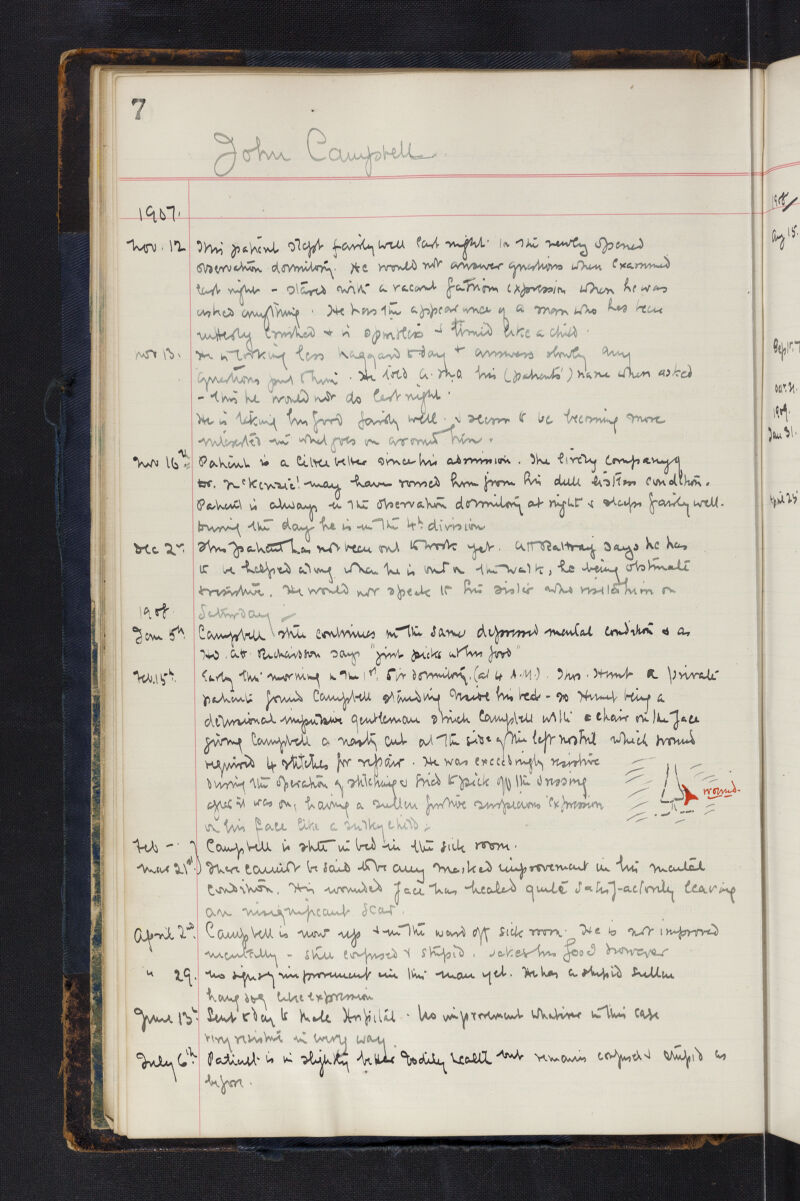 7
John Campbell
1907.
Nov. 12 This patient slept fairly well last night in the newly opened
observation dormitory. He would not answer questions when examined
last night - stared with a vacant expression when he was
asked anything. He has the appearance of a man who has been
utterly crushed & is spiritless & timid like a child.
Nov 13. He is looking less haggard today & answers slowly any
questions put to him. He told A. M.O his (patients') name when asked
- this he would not do last night.
He is taking his food fairly well & seems to be becoming more
interested in what goes on around him.
Nov 16th Patient is a little better since his admission. The lively company of
Dr. McKenzie! may have roused him from his dull listless condition.
Patient is always in the observation dormitory at night & sleeps fairly well.
During the day he is in the 4th division
Dec 2nd This patient has not been out to work yet. Att says he has
to be helped along when he is out on the walk, he being obstinate
& resistive. He would not speak to his sister who visited him on
1908 Saturday
Jan 5th Campbell still continues in the same depressed mental condition & as
Hd. Att Richardson says "just picks at his food"
Feb. 15th. Early this morning in the 1st Div dormitory. (at 4 A.M.). Thos. Hunt a private
patient found Campbell standing beside his bed - so Hunt being a
delusional impulsive gentleman struck Campbell with a chair on the face
giving Campbell a nasty cut at the side of the left nostril which wound
required 4 stitches for repair. He was exceedingly resistive
during the operation of stitching & tried to pick off the dressing
after it was on, having a sullen furtive suspicious expression
on his face like a sulky child.
wound.
Feb - Campbell is still in bed in the sick room.
Mar 21st There cannot be said to be any marked improvement in his mental
condition. His wounded face has healed quite satisfactorily leaving
an insignificant scar.
April 2nd. Campbell is now up & in the ward off sick room. He is not improved
mentally - still confused & stupid. Takes his food however
" 29. No signs of improvement in this man yet. He has a stupid sullen
hang dog like expression
June 13th Sent today to Male Hospital. No improvement whatever in this case
very resistive in every way.
July 6th. Patient is in slightly better bodily health but remains confused & stupid as
before.
1908
Aug 15.
Sept. 7
Oct. 31.
1909.
Jan 31.
April 25